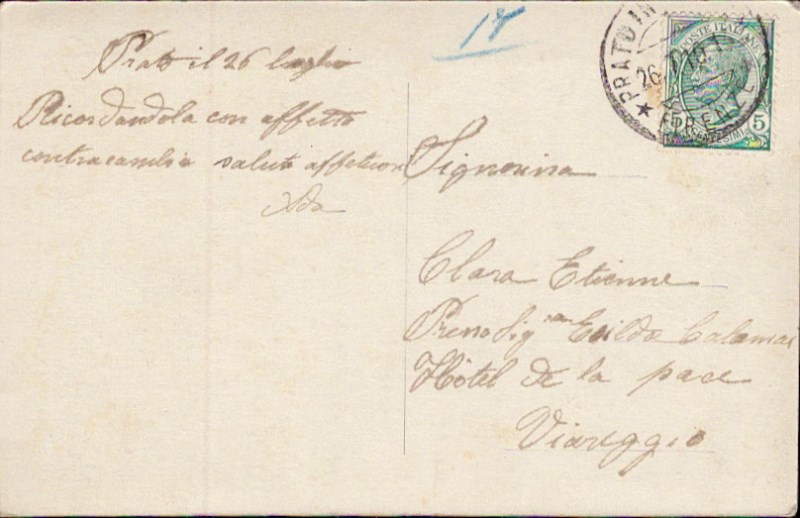 18
Prato il 26 luglio
Ricordandola con affetto
contracambia saluti affettuosi
Ada
PRATO IN
26.
FIRENZE
POSTE ITALIANE
CENTESIMI 5
Signorina
Clara Etienne
Presso Sig.na Esilda Calamai
Hôtel de la pace
Viareggio